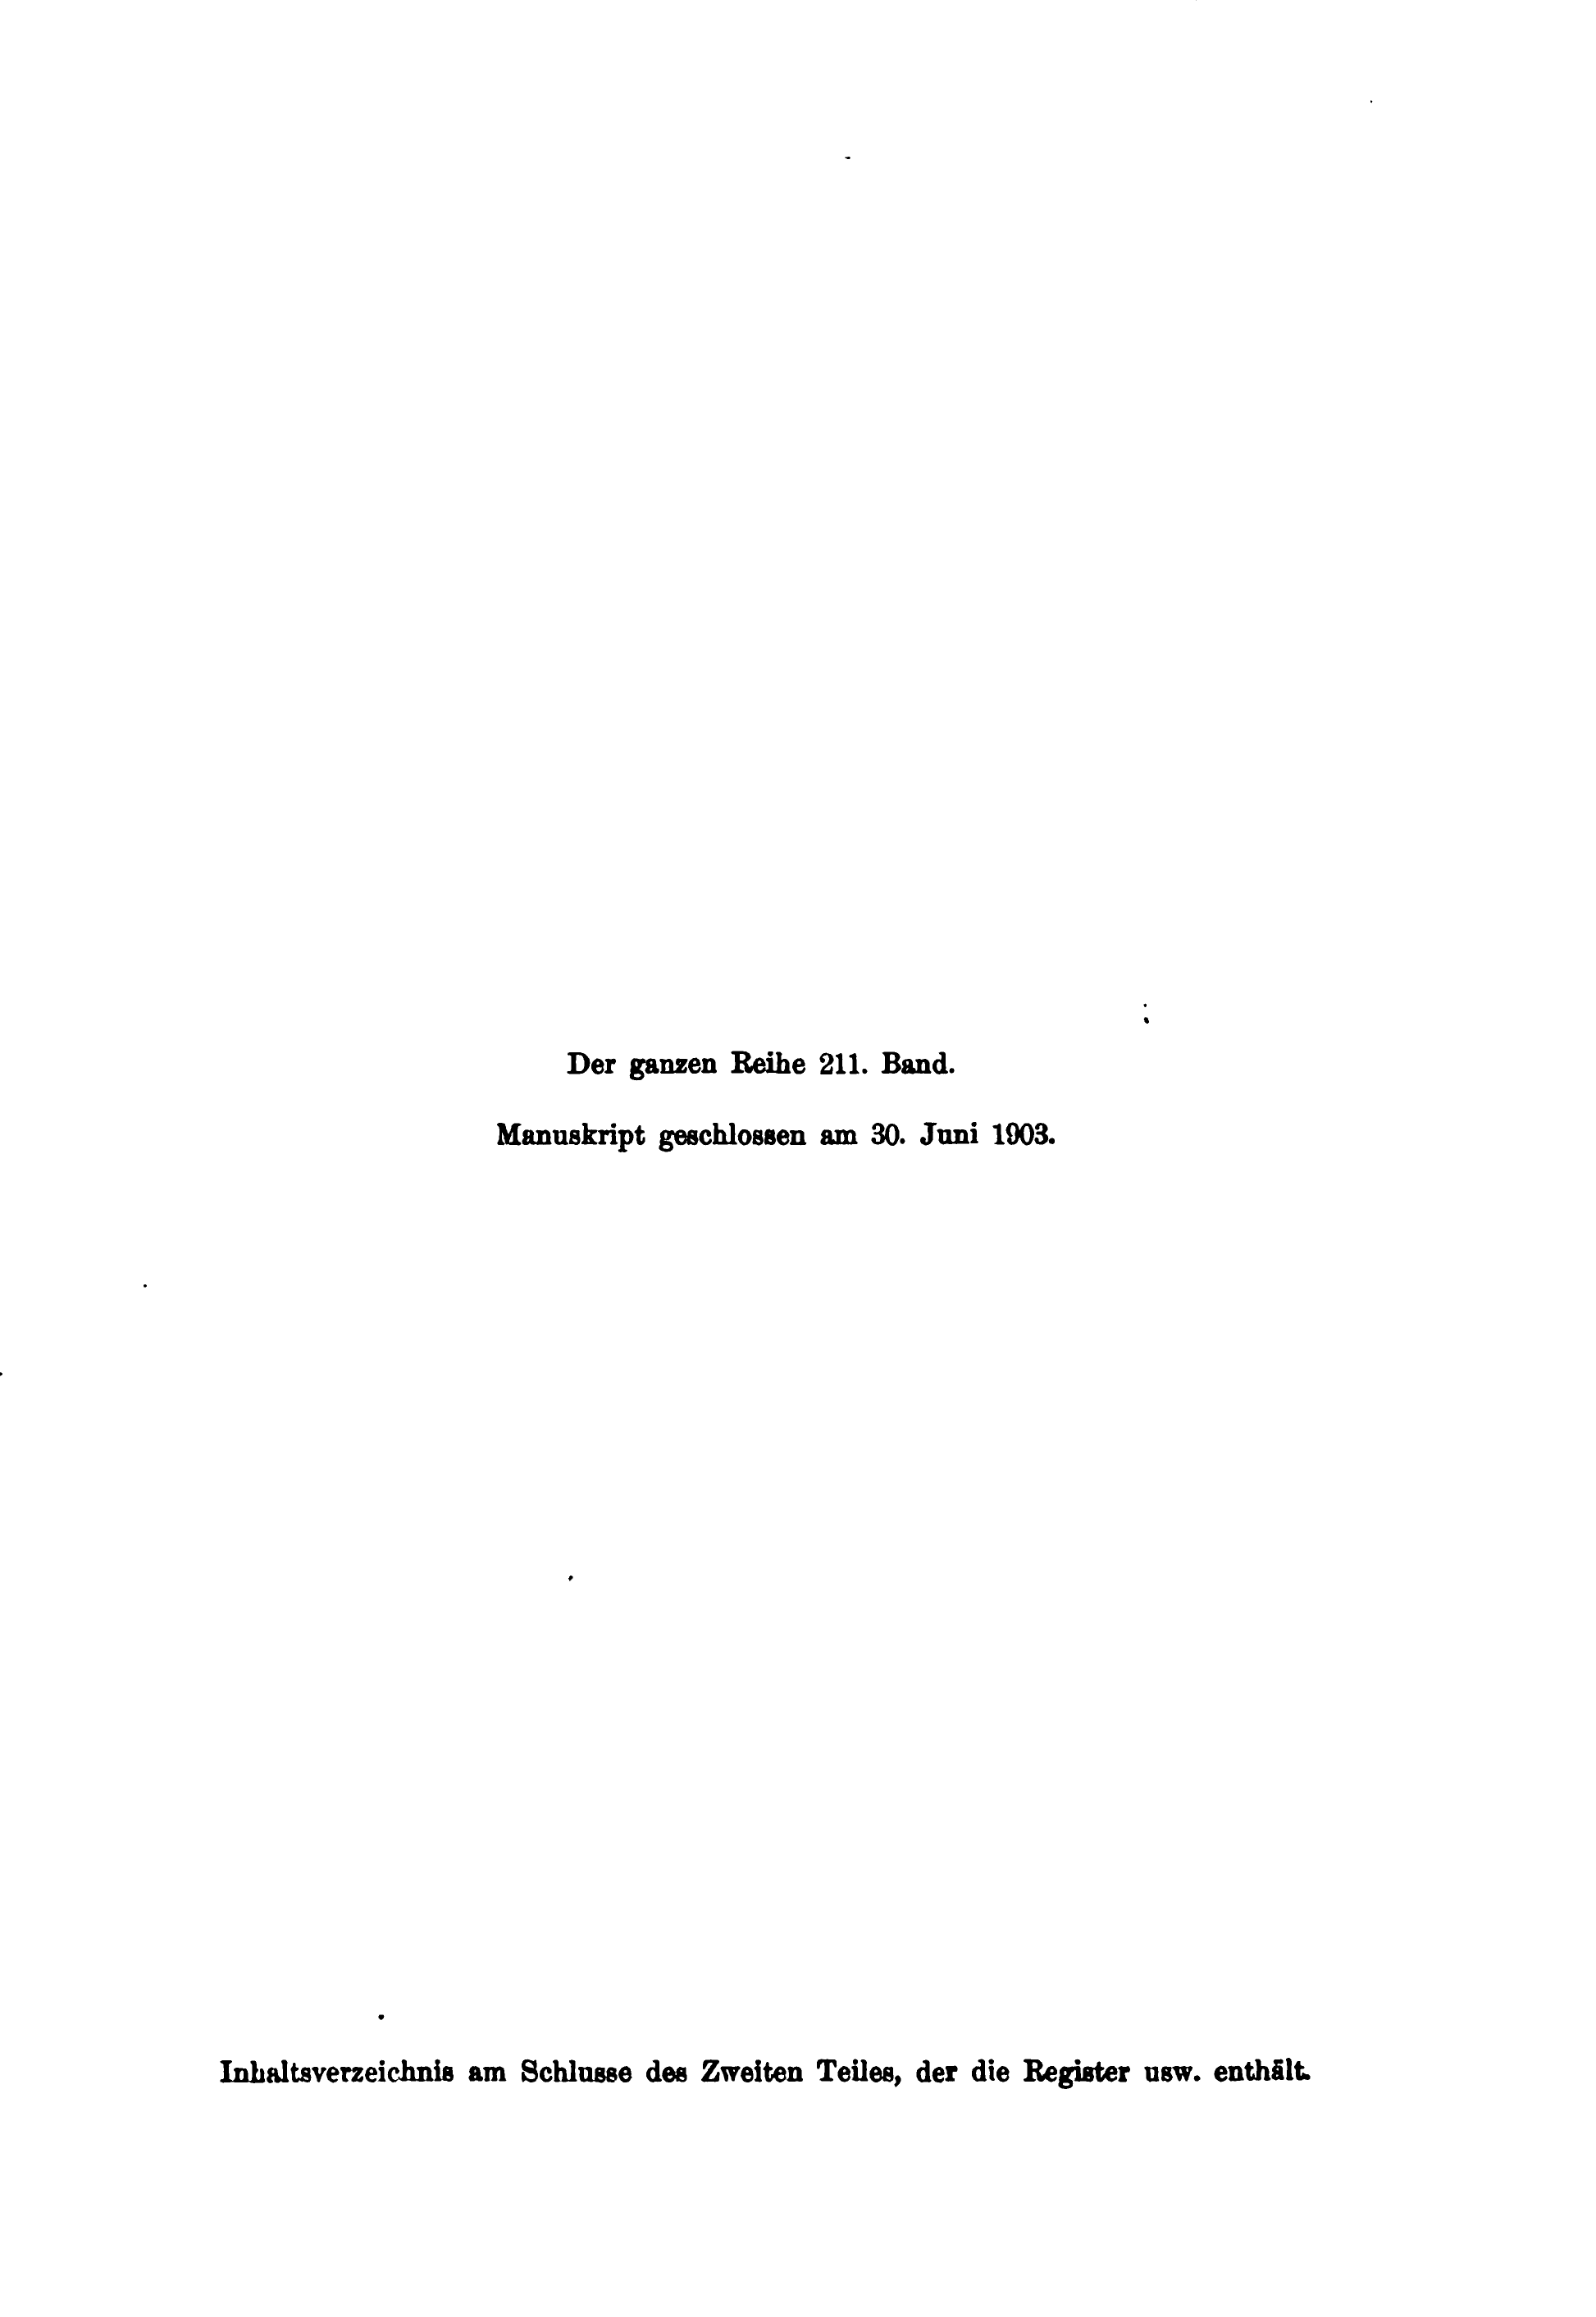 Der ganzen Reihe 211. Band.
Manuskript geschlossen am 30. Juni 1903.
Inhaltsverzeichnis am Schlusse des Zweiten Teiles, der die Register usw. enthält.